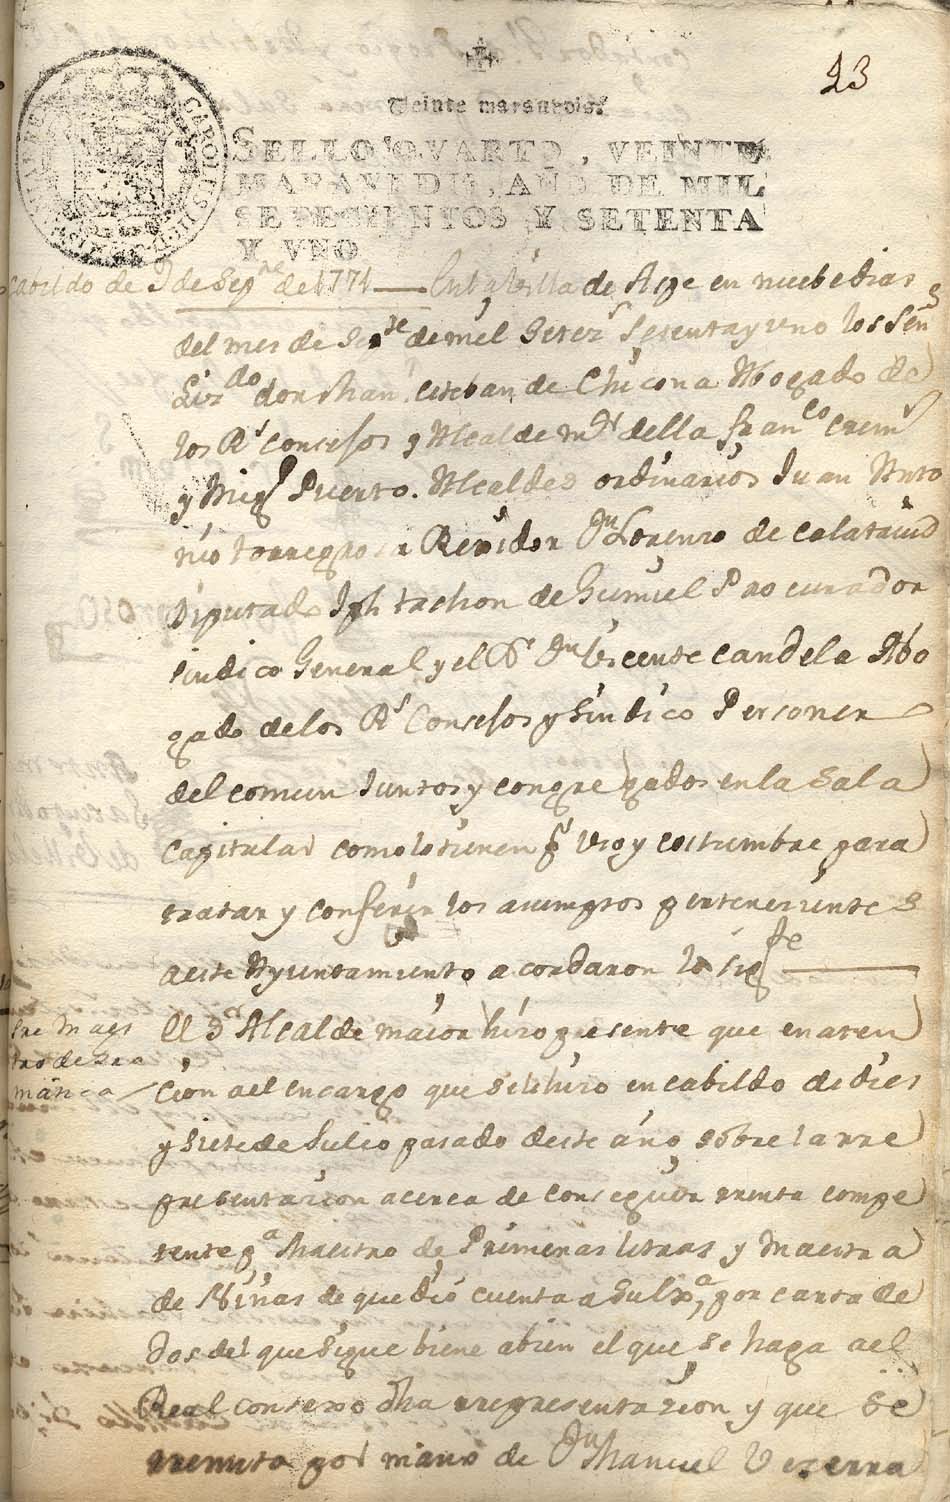 23
Veinte maravedis.
SELLO QVARTO, VEINTE
MARAVEDIS, AÑO DE MIL
SETECIENTOS Y SETENTA
Y VNO
CAROLUS III D
Cabildo de 9 de Sepre de 1771 — En la Villa de Aspe en nuebe dias
del mes de Sepre de mil Setezs Setenta y uno los Señs
Lizdo don Manl Esteban de Chicona Abogado de
los Rs Consejos y Alcalde mor della franco Crems
y Migl Puerto Alcaldes ordinarios Juan Anto
nio torregrosa Rexidor Dn Lorenzo de Calataiud
Diputado Jph tachon de Gumiel Procurador
sindico General y el Dr Dn Vicente Candela Abo
gado delos Rs Consejos y Sindico Personer
del comun Juntos y congregados en la Sala
Capitular como lo tienen pr uso y costumbre para
tratar y conferir los asumptos pertenesientes
a este Ayuntamiento acordaron lo sigte
Sre Maes
tro de Gra
matica
El Sr Alcalde maior hizo presente que en aten
cion a el encargo que se le hizo en cabildo de dies
y siete de Julio pasado deste año sobre la rre
presentazion acerca de conseguir rrenta compe
tente pa Maestro de Primeras letras y Maestra
de Niñas de que dió cuenta a Su Exa, por carta de
dos del que sigue biene abien el que se haga a el
Real consexo dha rrepresentazion y que se
rremita por mano de Dn Manuel Vezerra